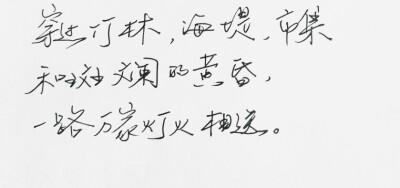 穿过竹林,海堤,市集
和斑斑斓的黄昏,
一路万家灯火相送。